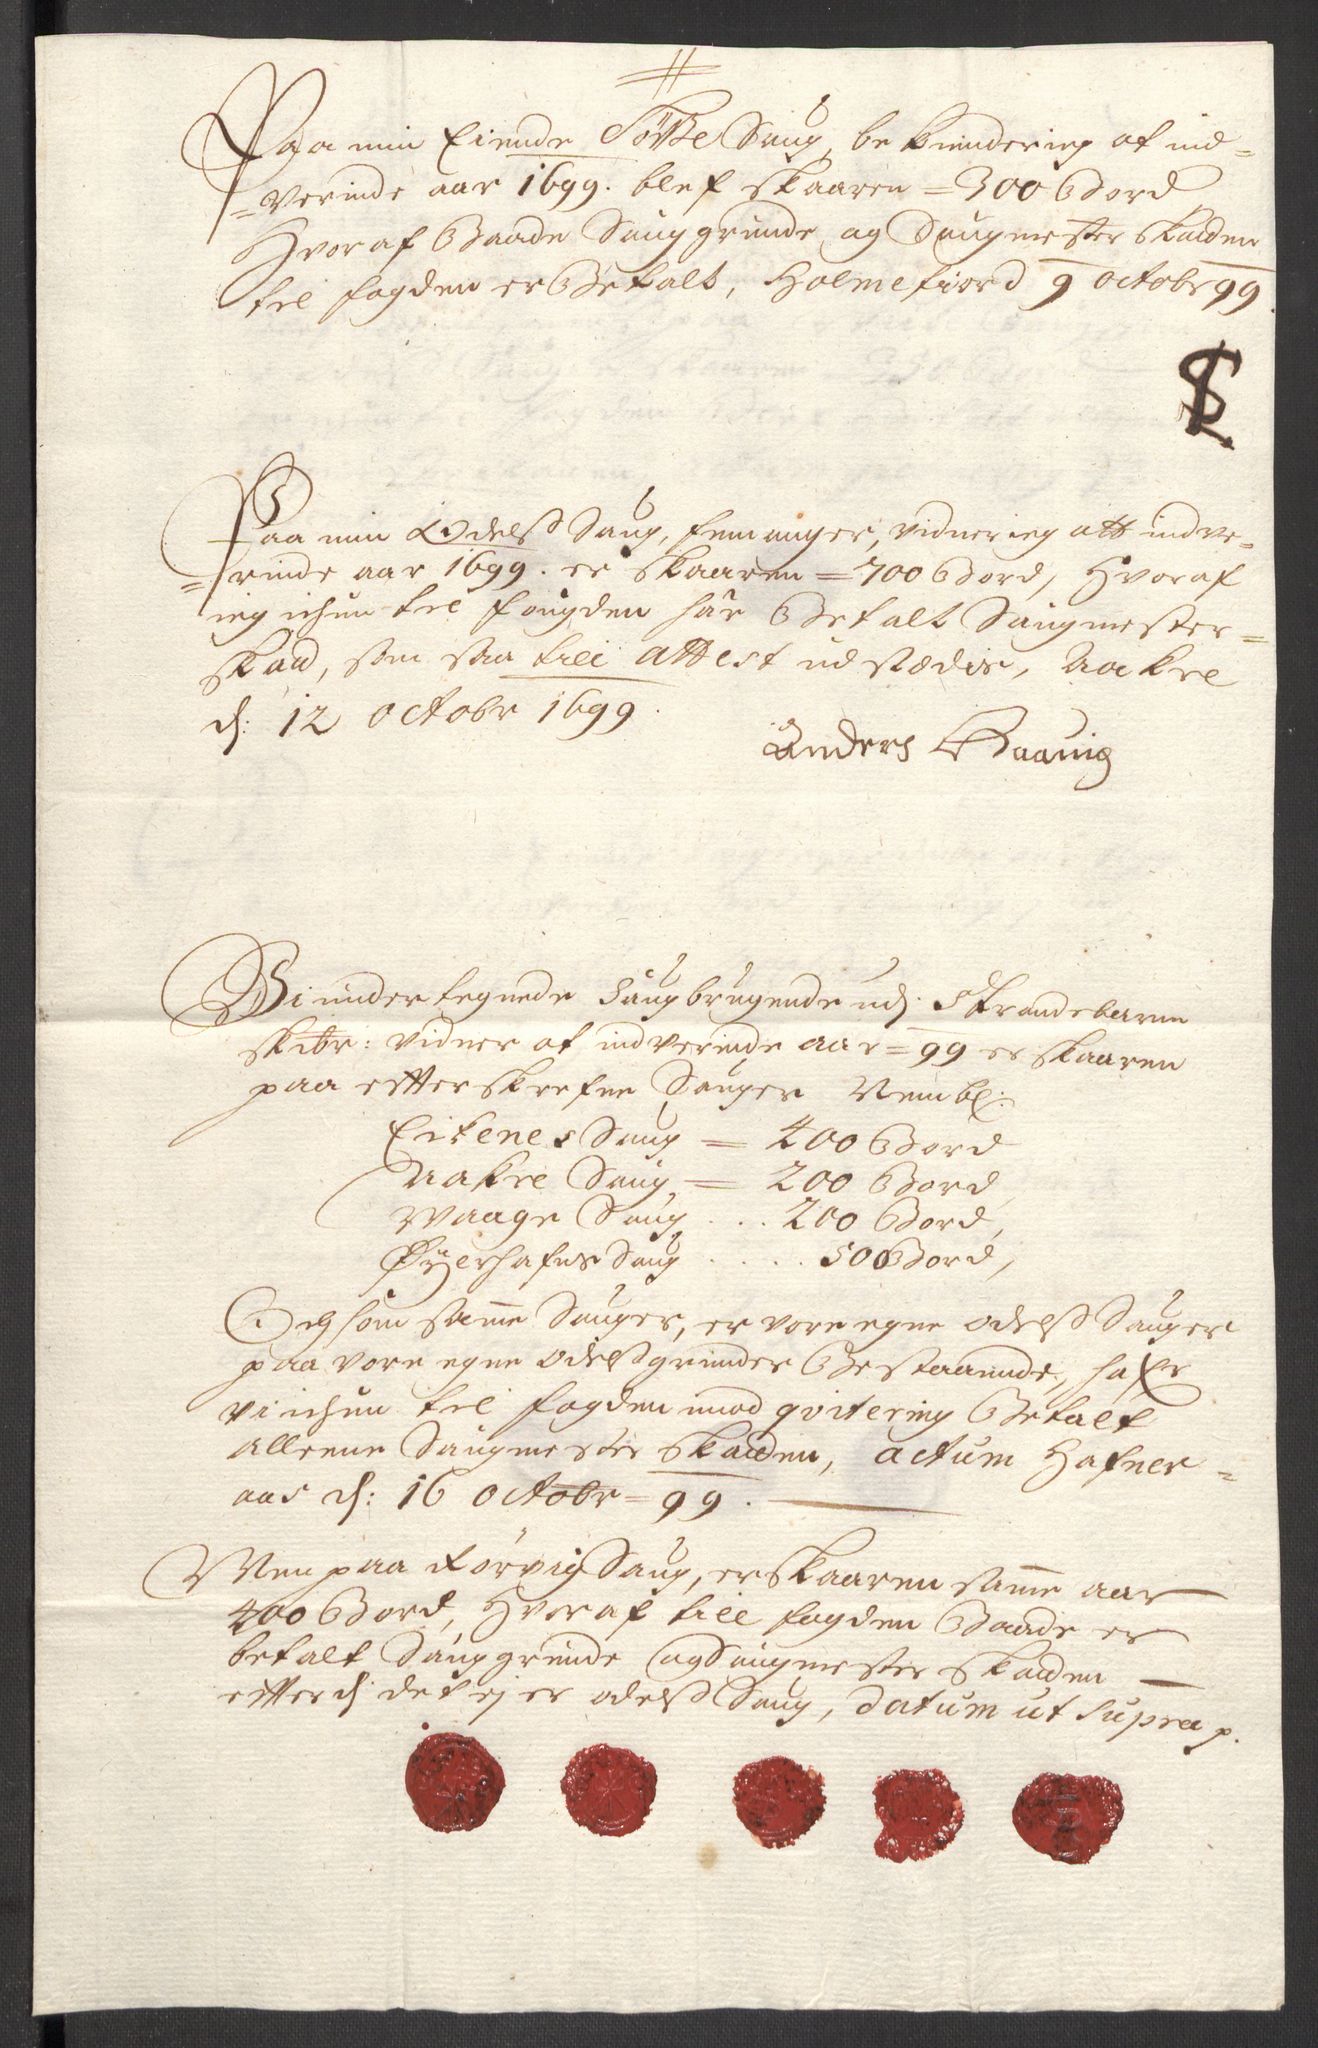 Paa min Eiende Sørße Saug, bekiender ieg at ind=
=verinde aar 1699. blef skaaren = 300 Bord
Hvoraf Baade Sauggrunde og Saugmester skatden
til fogden er Betalt, Holmefiord 9 octobr 99.
Paa min Odelß Saug, femanger, vidner ieg att indve=
=rinde aar 1699. er skaaren = 700 Bord, Hvoraf
ieg ichun til fougden har Betalt Saugmester=
skat, som saa till attest udstædis, Aakre
d: 12 octobr 1699.
Anders Haavig
Vi undertegnede Saugbrugende udj Strandebarm
skibr: vidner at indverinde aar = 99 er skaaren
paa efterskrefne Sauger Nembl:
Eikenes Saug = 400 Bord
Aakre Saug = 200 Bord
Waage Saug . . . 200 Bord,
Øyerhafns Saug . . . . . 50 Bord,
Och som samme Sauger, er vore egne odelß Sauger
paa vore egne Odelßgrunder Bestaaende, hafr
vi ichun til fogden imod qvitering Betalt
alleene Saugmester skatden, actum Hafner=
aas d: 16 octobr = 99.
Men paa Kørvig Saug, er skaaren samme aar
400 Bord, Hvoraf till fogden Baade er
betalt Sauggrunde og Saugmester skatden
efterdj det ej er odelß Saug, datum ut supra p.